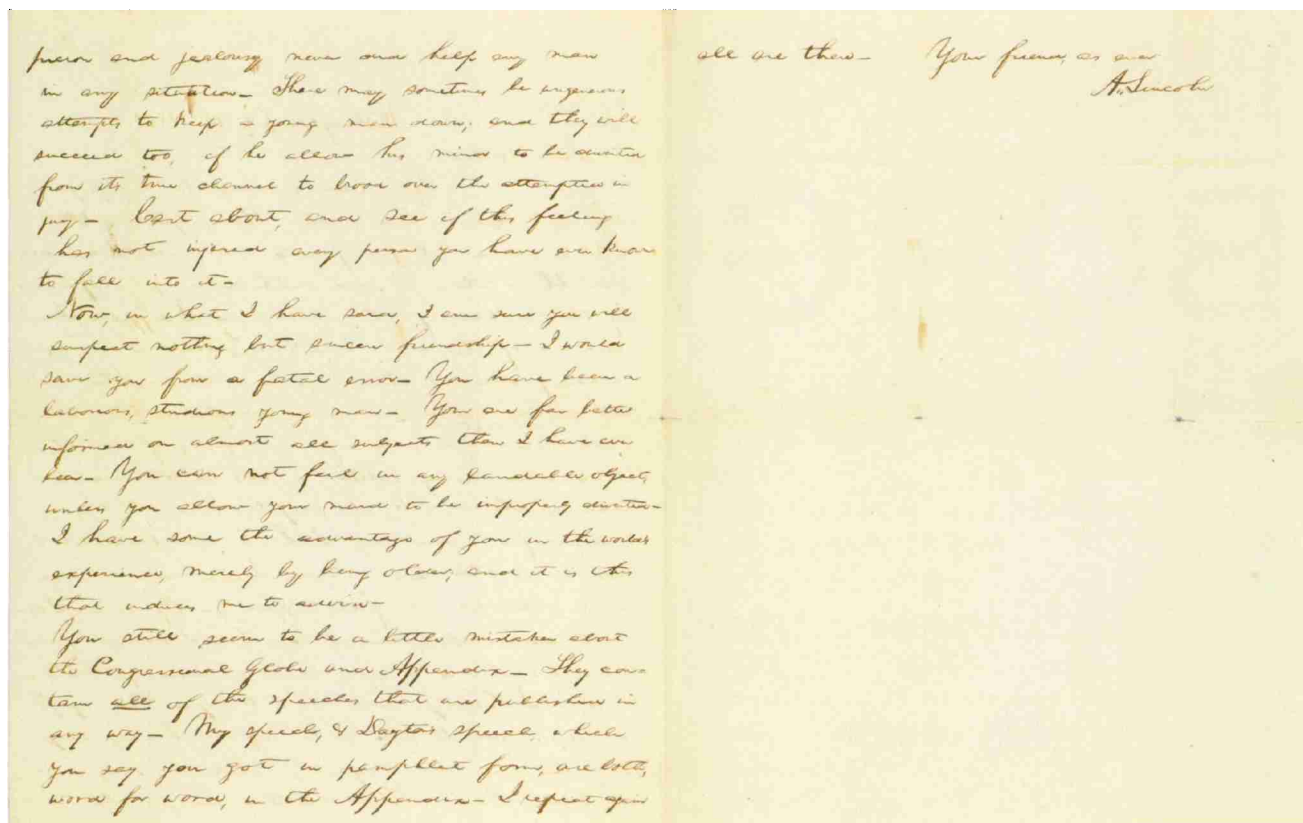 picion and jealousy never did help any man
in any situation— There may sometimes be ungenerous
attempts to keep a young man down; and they will
succeed too, if he allows his mind to be diverted
from its true channel to brood over the attempted in
jury— Cast about, and see if this feeling
has not injured every person you have ever known
to fall into it—
Now, in what I have said, I am sure you will
suspect nothing but sincere friendship— I would
save you from a fatal error— You have been a
laborious, studious young man— You are far better
informed on almost all subjects than I have ever
been— You can not fail in any laudable object,
unless you allow your mind to be improperly directed—
I have some the advantage of you in the world's
experience, merely by being older; and it is this
that induces me to advise—
You still seem to be a little mistaken about
the Congressional Globe and Appendix— They con-
tain all of the speeches that are published in
any way— My speech, & Dayton's speech, which
you say you got in pamphlet form, are both,
word for word, in the Appendix— I repeat again
all are there— Your friend, as ever
A. Lincoln